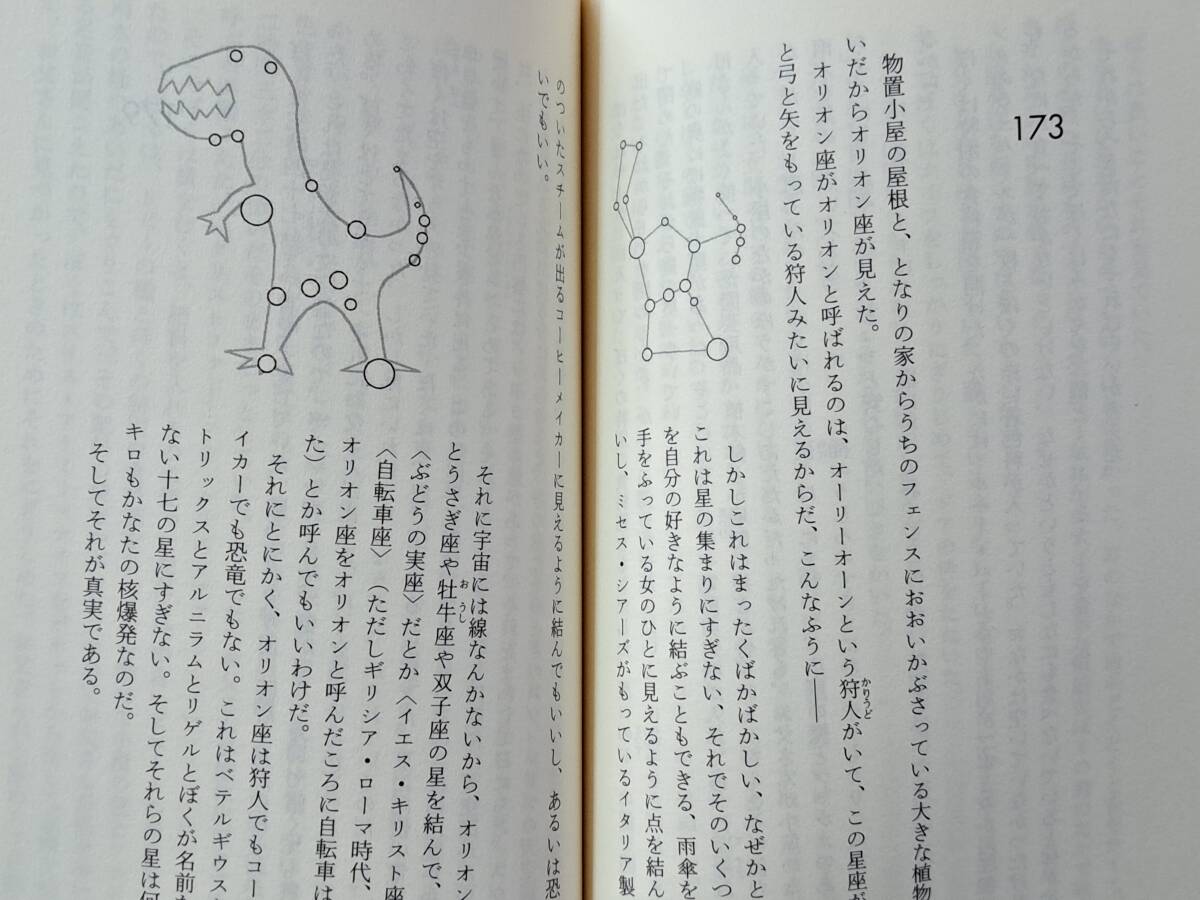 173
物置小屋の屋根と、となりの家からうちのフェンスにおおいかぶさっている大きな植物
いだからオリオン座が見えた。
オリオン座がオリオンと呼ばれるのは、オーリーオーンという狩人がいて、この星座が
かりうど
と弓と矢をもっている狩人みたいに見えるからだ、こんなふうに――
しかしこれはまったくばかばかしい、なぜかと
これは星の集まりにすぎない、それでそのいくつ
を自分の好きなように結ぶこともできる、雨傘を
手をふっている女のひとに見えるように点を結ん
いし、ミセス・シアーズがもっているイタリア製
のついたスチームが出るコーヒーメイカーに見えるように結んでもいいし、あるいは恐
いでもいい。
それに宇宙には線なんかないから、オリオン
とうさぎ座や牡牛座や双子座の星を結んで、
おうし
〈ぶどうの実座〉だとか〈イエス・キリスト座
〈自転車座〉（ただしギリシア・ローマ時代、
オリオン座をオリオンと呼んだころに自転車は
た）とか呼んでもいいわけだ。
それにとにかく、オリオン座は狩人でもコー
イカーでも恐竜でもない。これはベテルギウス
トリックスとアルニラムとリゲルとぼくが名前
ない十七の星にすぎない。そしてそれらの星は何
キロもかなたの核爆発なのだ。
そしてそれが真実である。